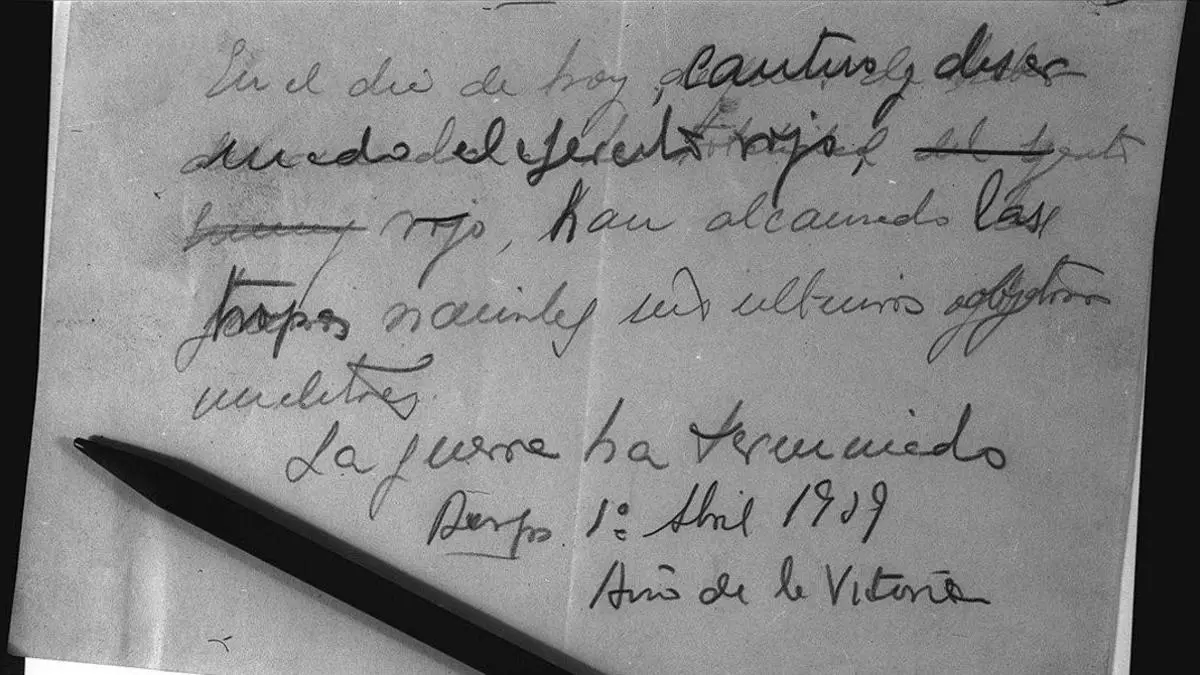 En el día de hoy, cautivo y desar
mado el ejercito rojo, del
rojo, han alcanzado las
tropas nacionales sus ultimos objetivos
militares.
La guerra ha terminado
Burgos 1º Abril 1939
Año de la Vitoria